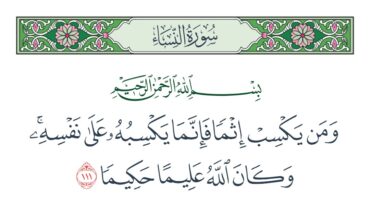 سُورَةُ النِّسَاءِ
بِسْمِ اللَّهِ الرَّحْمَٰنِ الرَّحِيمِ
وَمَن يَكْسِبْ إِثْمًا فَإِنَّمَا يَكْسِبُهُۥ عَلَىٰ نَفْسِهِۦ ۚ
وَكَانَ ٱللَّهُ عَلِيمًا حَكِيمًا ١١١